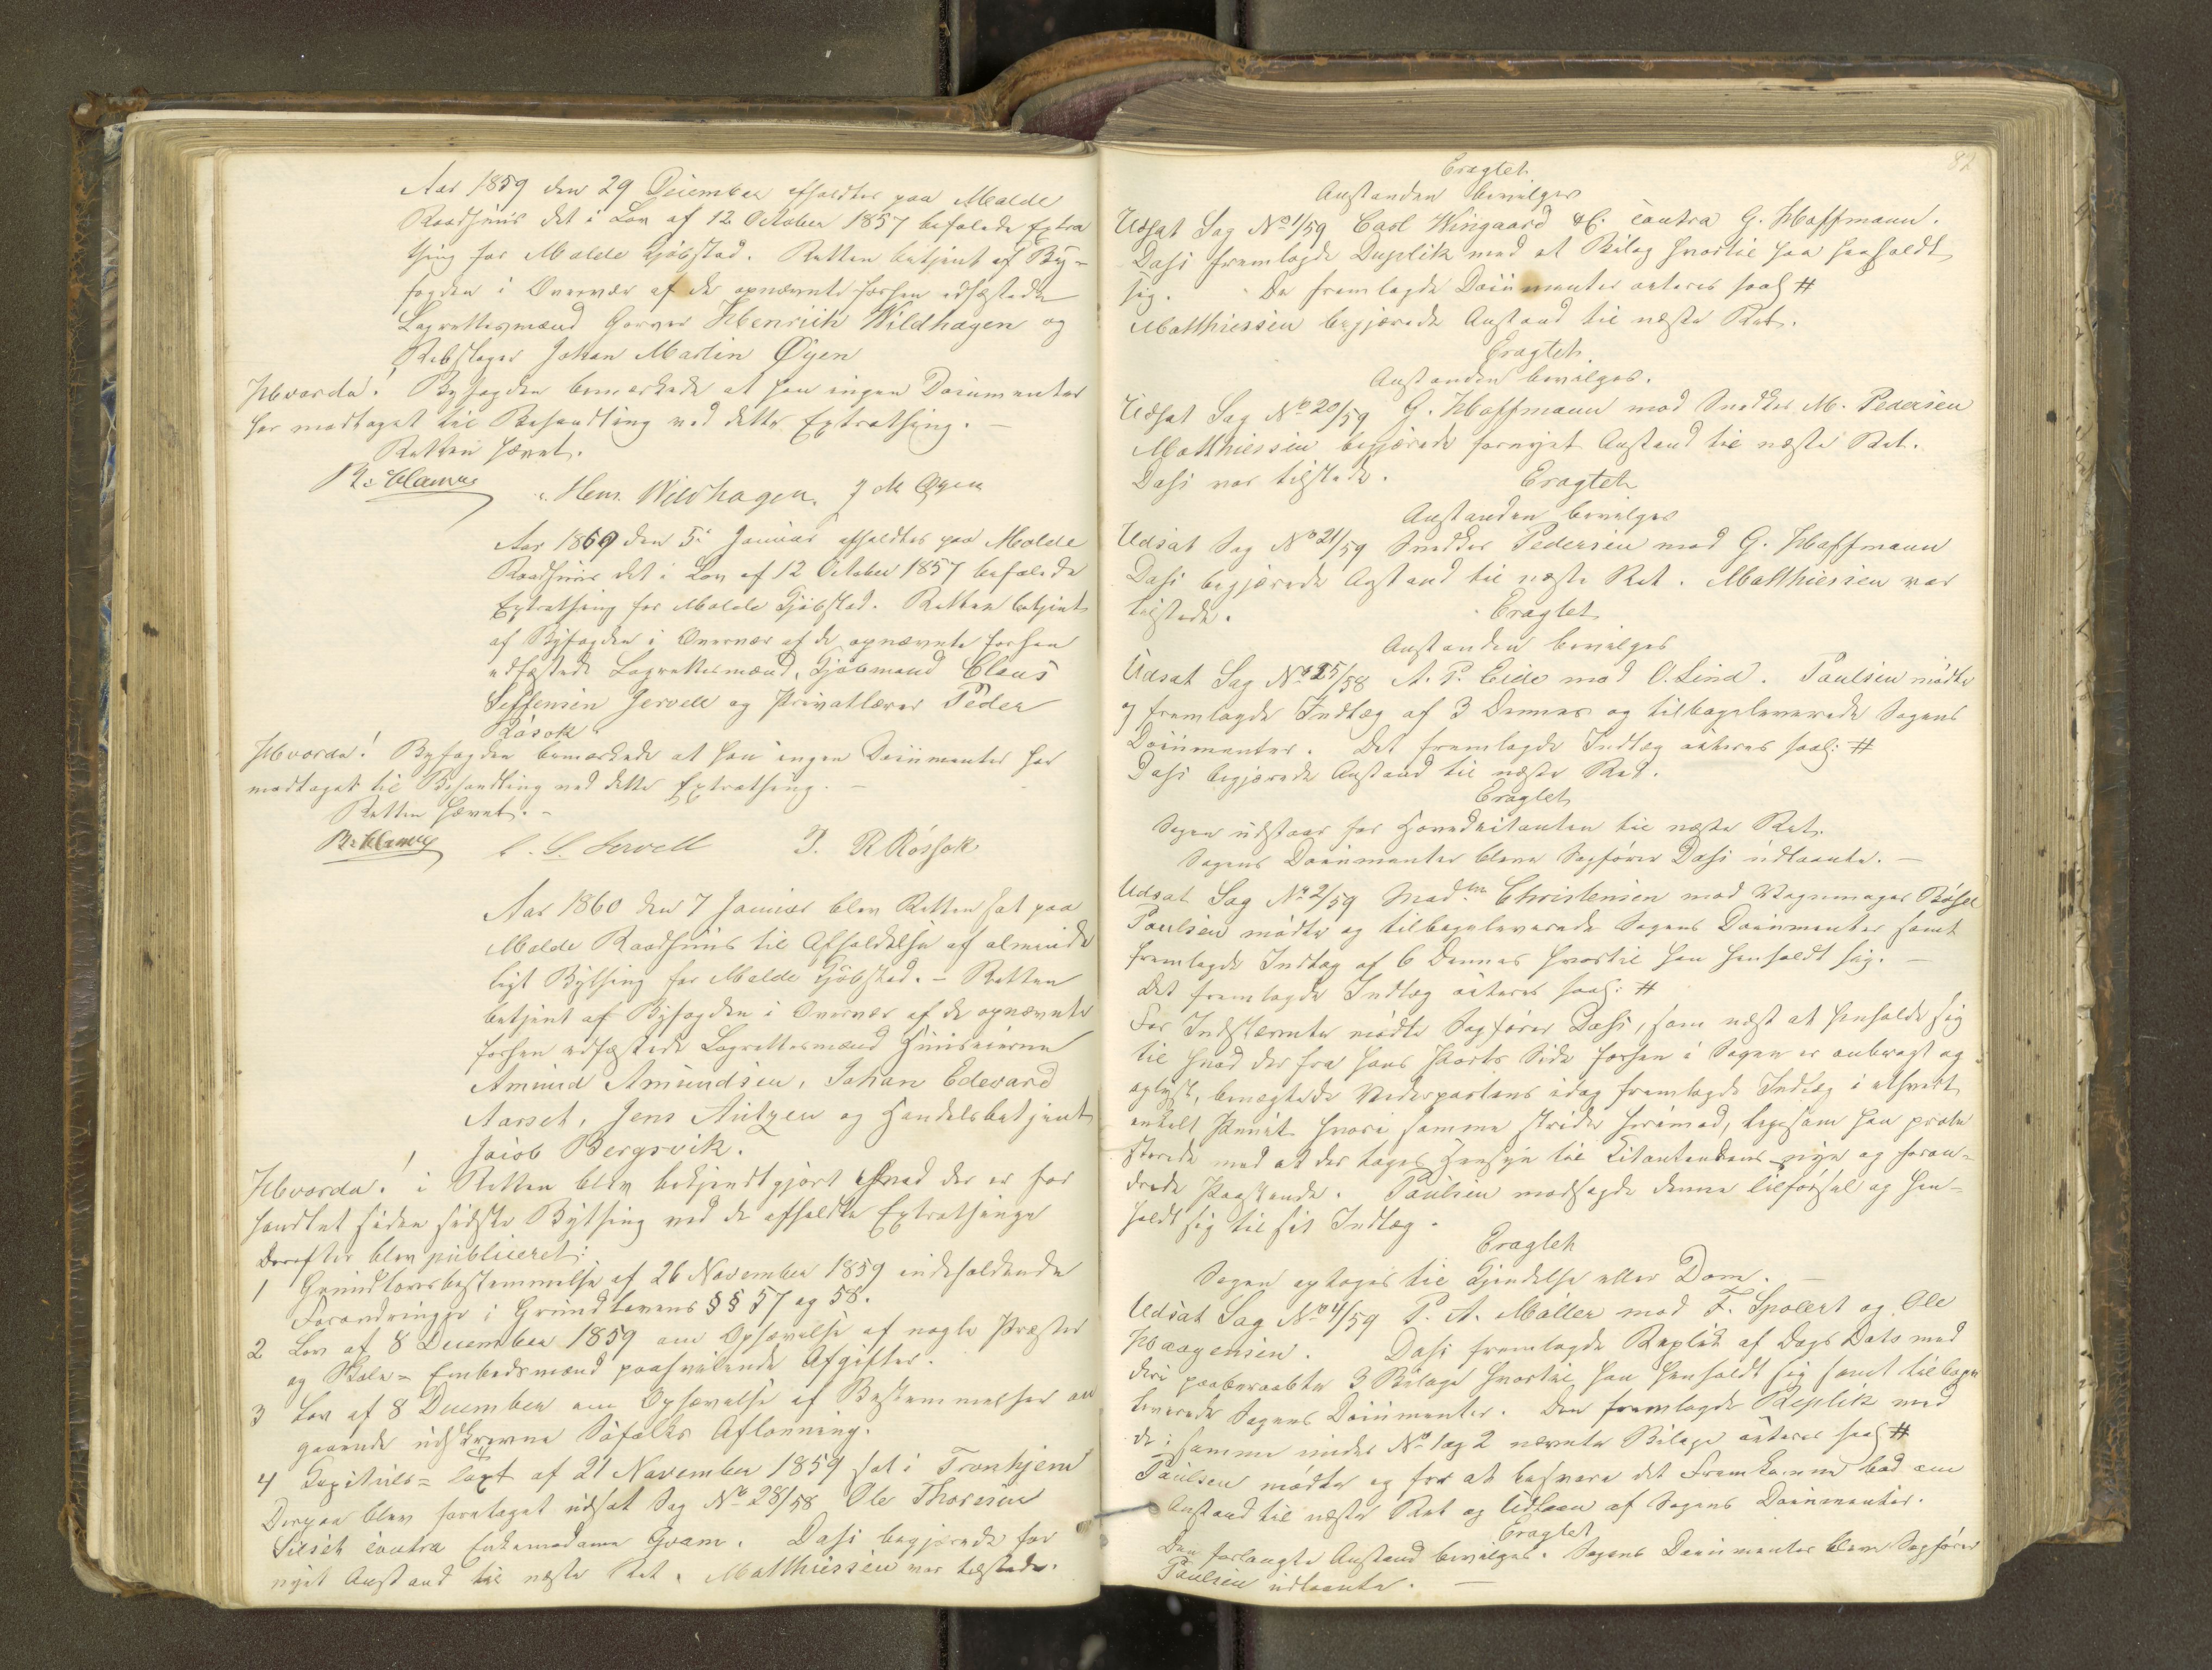 Aar 1859 den 29 December afholdtes paa Molde
Raadhuus det i Lov af 12 October 1857 befalede Extra
thing for Molde Kjøbstad. Retten betjent af By-
fogden i Overvær af de opnævnte forhen edfæstede
Lagrettesmænd Garver Henrich Wildhagen og
Rebslager Johan Martin Øyen
Hvorda! Byfogden bemærkede at han ingen Documenter
har modtaget til Behandling ved dette Extrathing. –
Retten hævet.
Henr. Wildhagen. J M Øyen
Aar 1860 den 5 Januar afholdtes paa Molde
Raadhuus det i Lov af 12 October 1857 befalede
Extrathing for Molde Kjøbstad. Retten betjent
af Byfogden i Overvær af de opnævnte forhen
edfæstede Lagrettesmænd, Kjøbmand Claus
Steffensen Jervell og Privatlærer Peder
Røsok.
Hvorda! Byfogden bemærkede at han ingen Documenter har
modtaget til Behandling ved dette Extrathing. –
Retten hævet. –
C. S. Jervell P. R Røssok
Aar 1860 den 7 Januar blev Retten sat paa
Molde Raadhuus til Afholdelse af alminde
ligt Bything for Molde Kjøbstad. – Retten
betjent af Byfogden i Overvær af de opnævnte
forhen edfæstede Lagrettesmænd Huuseierne
Amund Amundsen, Johan Edevard
Aarset, Jens Antzen og Handelsbetjent
Jacob Bergsvik.
Hvorda! i Retten blev bekjendtgjort hvad der er for
handlet siden sidste Bything ved de afholdte Extrathinge
Derefter blev publiceret:
1 Grundlovsbestemmelse af 26 November 1859 indeholdende
Forandringer i Grundlovens §§ 57 og 58.
2 Lov af 8 December 1859 om Ophævelse af nogle Præster
og Skole- Embedsmænd paahvilende Afgifter.
3 Lov af 8 December om Ophævelse af Bestemmelser an
gaaende udskrevne Søfolks Aflønning.
4 Kapitels- Taxt af 21 November 1859 sat i Tronhjem
Derpaa blev foretaget udsat Sag No 28/58 Ole Thoresen
Silseth contra Enkemadame Gram. Dahl begjærede for
nyet Anstand til næste Ret. Matthiessen var tilstede.
82
Eragtet
Anstanden bevilges
Udsat Sag No 1/59 Carl Wingaard &C. contra G. Hoffmann.
Dahl fremlagde Duplik med et Bilag hvortil han henholdt
sig. De fremlagde Documenter acteres saal: #
Matthiessen begjærede Anstand til næste Ret.
Eragtet
Anstanden bevilges.
Udsat Sag No 20/59 G. Hoffmann mod Snedker M. Pedersen
Matthiessen begjærede fornyet Anstand til næste Ret.
Dahl var tilstede. Eragtet
Anstanden bevilges
Udsat Sag No 21/59 Snedker Pedersen mod G. Hoffmann
Dahl begjærede Anstand til næste Ret. Matthiessen var
tilstede. Eragtet
Anstanden bevilges
Udsat Sag No 25/58 A. P. Eide mod O. Lind. Paulsen mødte
og fremlagde Indlæg af 3 Dennes og tilbageleverede Sagens
Documenter. Det fremlagde Indlæg acteres saal: #
Dahl begjærede Anstand til næste Ret.
Eragtet
Sagen udstaar for Hovedcitanten til næste Ret.
Sagens Documenter bleve Sagfører Dahl udlaante. –
Udsat Sag No 2/59 Madm Christensen mod Vognmager
Paulsen mødte og tilbageleverede Sagens Documenter samt
fremlagde Indlæg af 6 Dennes hvortil han henholdt sig. –
Det fremlagde Indlæg acteres saal: #
For Indstævnte mødte Sagfører Dahl, som næst at henholde sig
til hvad der fra hans Parts Side forhen i Sagen er anbragt og
oplyst, benægtede Modpartens idag fremlagde Indlæg i ethvert
enkelt Punct hvori samme strider herimod, ligesom han prote
sterede mod at der tages Hensyn til Citantindens nye og foran-
drede Paastande. Paulsen modsagde denne Tilførsel og hen-
holdt sig til sit Indlæg.
Eragtet
Sagen optages til Kjendelse eller Dom. –
Udsat Sag No 4/59 P. A. Møller mod F. Spolert og Ole
Haagensen. Dahl fremlagde Replik af Dags Dato med
deri paaberaabte 3 Bilage hvortil han henholdt sig samt tilbage
leverede Sagens Documenter. Den fremlagde Replik med
de i samme under No 1 og 2 nævnte Bilage acteres saal: #
Paulsen mødte og for at besvare det Fremkomne bad om
Anstand til næste Ret og Udlaan af Sagens Documenter.
Eragtet
Den forlangte Anstand bevilges. Sagens Documenter bleve Sagfører
Paulsen udlaante. –